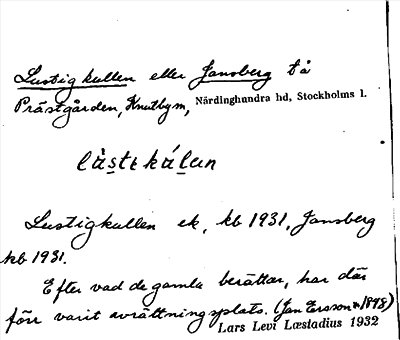 Lustigkullen eller Jansberg tå
Prästgården, Knutbym, Närdinghundra hd, Stockholms l.
lùstikálan
Lustigkullen ek, kb 1931, Jansberg
kb 1931.
Efter vad de gamla berättar, har där
förr varit avrättningsplats. (Jan Ersson 1848)
Lars Levi Læstadius 1932